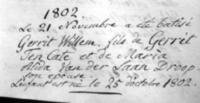 1802.
Le 21 Novembre a été batisé
Gerrit Willem, fils de Gerrit
Ten Cate et de Maria
Alida Van der Laan Proop
son epouse.
L'enfant est né le 25 octobre 1802.